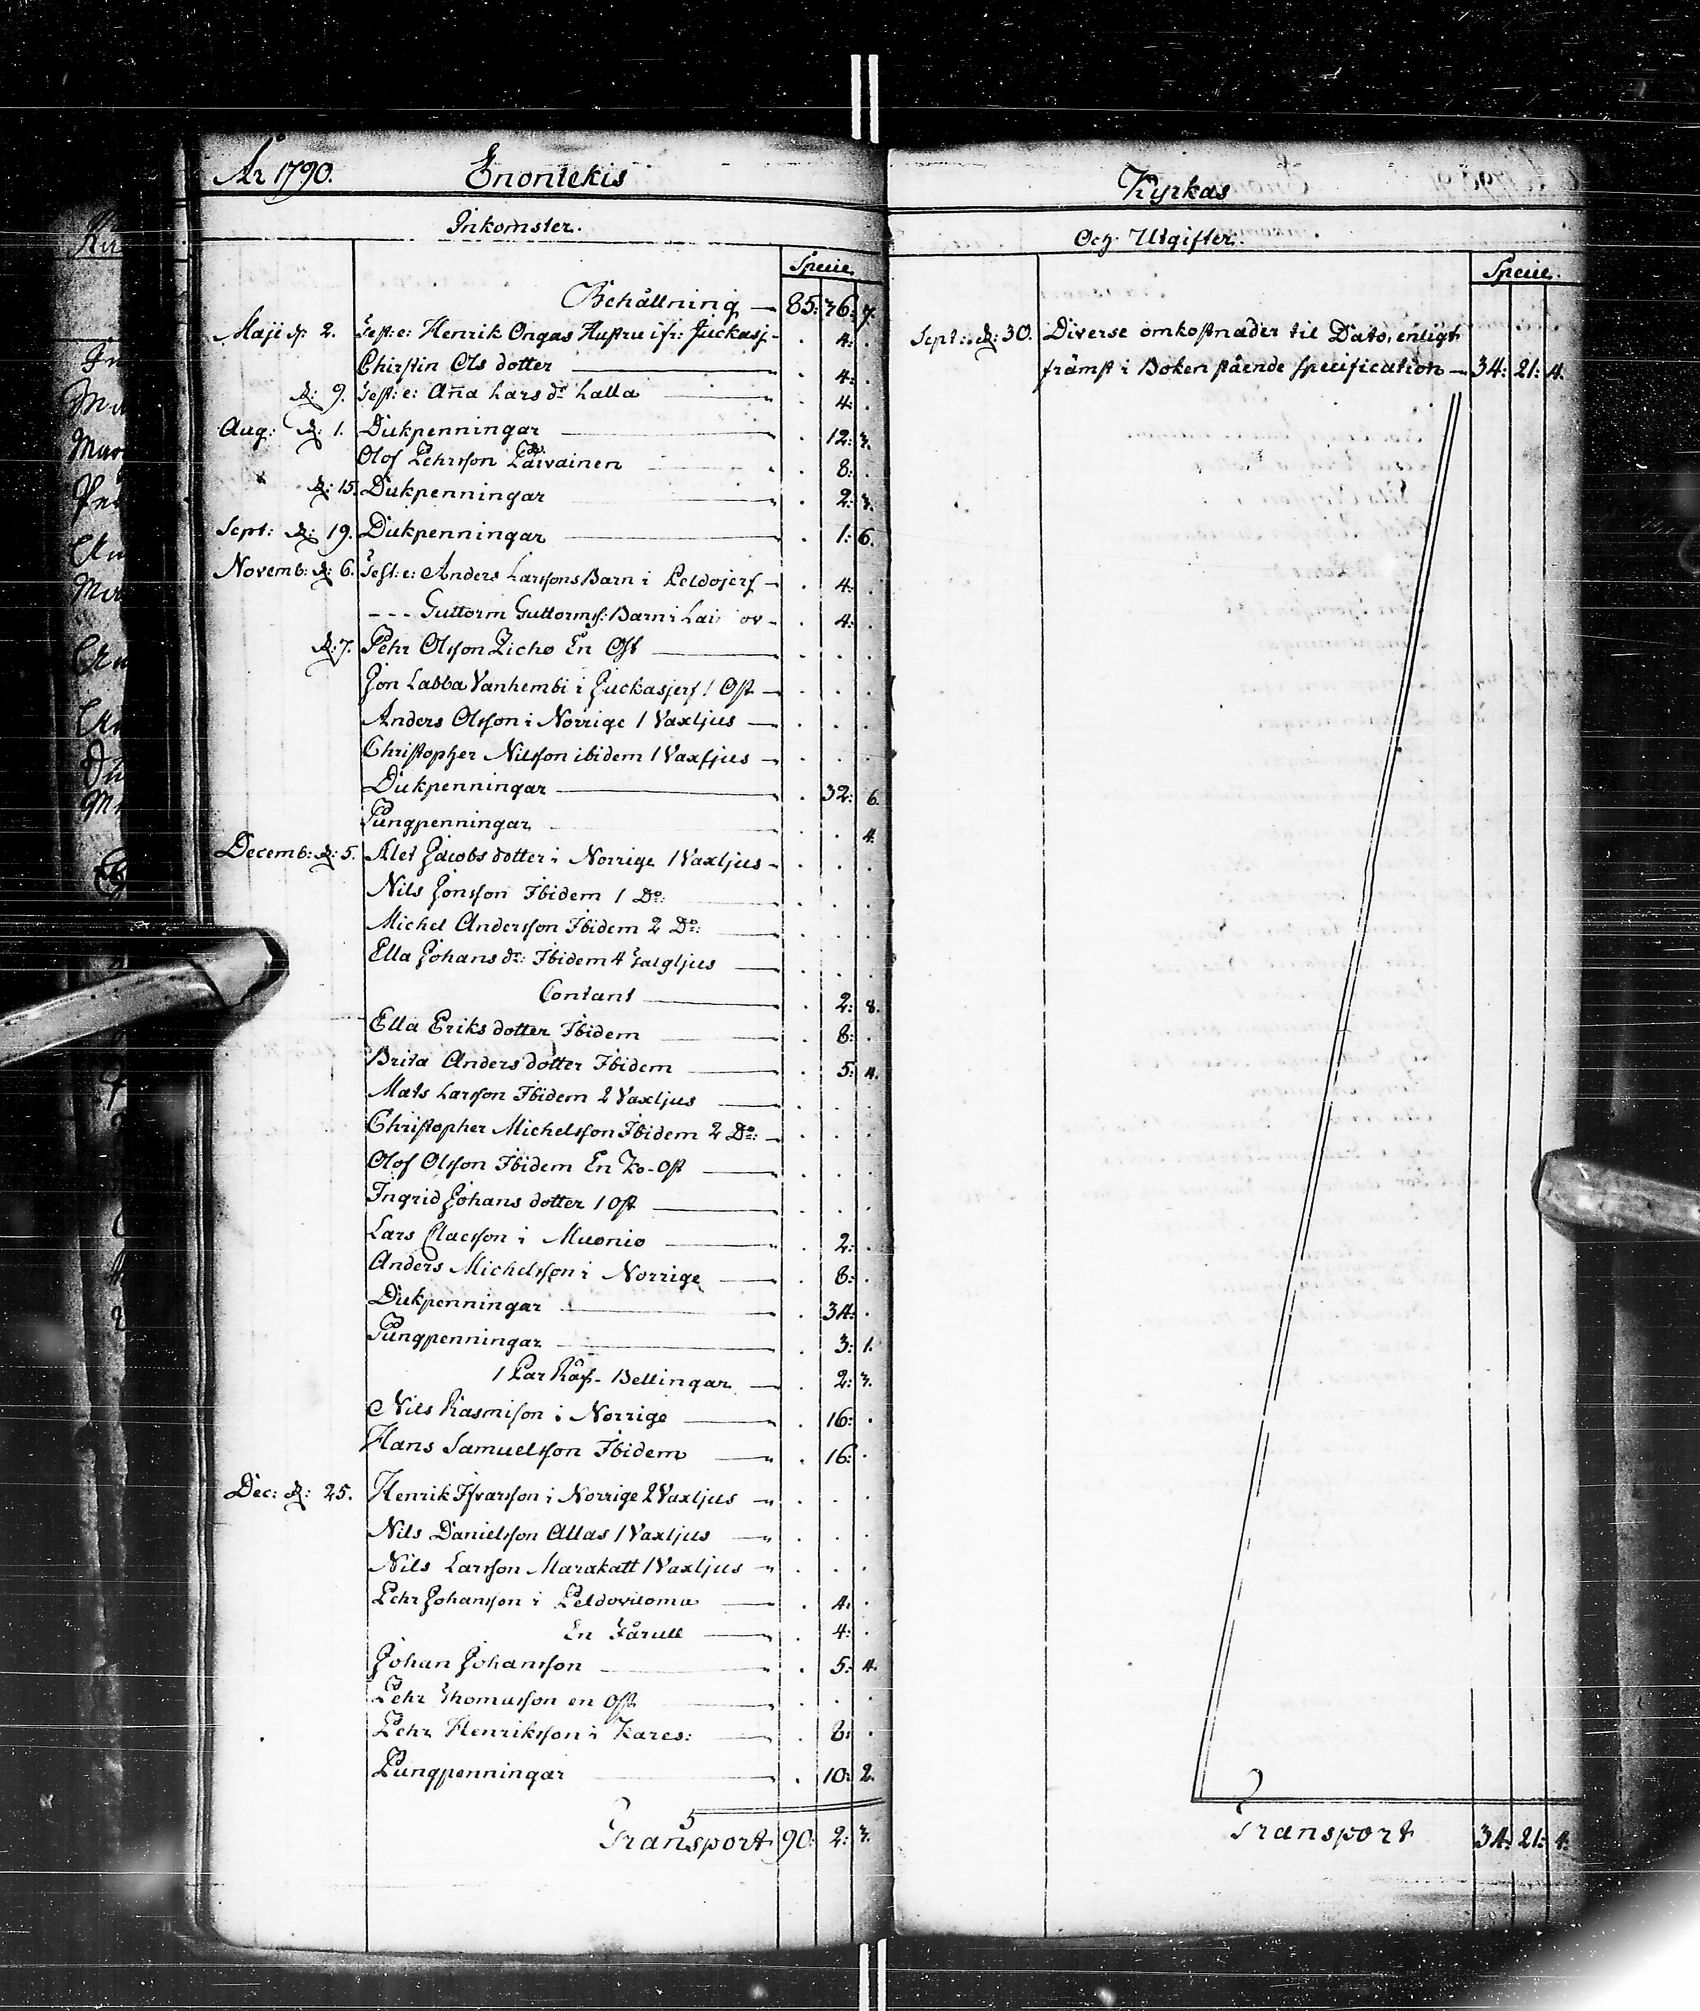 År 1790. Enontekis
Inkomster.
Specie.
Behållning — 85: 36: 7.
Maji d: 2. Test: e: Henrik Ongas Hustru ifr: Juckasj. . 4: .
Chirstin Ols dotter . 4: .
d: 9. Test: e: Aña Lars dr Lalla . 4: .
Aug: d: 1. Dukpenningar . 12: 3.
Olof Pehrsson Päivainen . 8: .
d: 15. Dukpenningar . 2: 3.
Sept: d: 19. Dukpenningar . 1: 6.
Novemb: d: 6. Test: e: Anders Larssons Barn i Peldojerf . 4: .
--- Guttorm Guttormss: Barn i . 4: .
d: 7. Pehr Olsson En Ost . . .
Jon Labba Vanhembi i Juckasjerf 1 Ost . . .
Anders Olsson i Norrige 1 Vaxljus . . .
Christopher Nilsson ibidem 1 Vaxljus . . .
Dukpenningar . 32: 6.
Pungpenningar . . 4.
Decemb: d: 5. Alet Jacobs dotter i Norrige 1 Vaxljus . . .
Nils Jonsson Ibidem 1 Do: . . .
Michel Andersson Ibidem 2 Do: . . .
Ella Johans dr: Ibidem 4 Talgljus . . .
Contant . 2: 8.
Ella Eriks dotter Ibidem . 8: .
Brita Anders dotter Ibidem . 5: 4.
Mats Larsson Ibidem 2 Vaxljus . . .
Christopher Michelsson Ibidem 2 Do: . . .
Olof Olsson Ibidem En Ko-Ost . . .
Ingrid Johans dotter 1 Ost . . .
Lars Claesson i Muonio . 2: .
Anders Michelsson i Norrige . 8: .
Dukpenningar . 34: .
Pungpenningar . 3: 1.
1 Par Räf-Bellingar . 2: 3.
Nils Rasmisson i Norrige . 16: .
Hans Samuelsson Ibidem . 16: .
Dec: d: 25. Henrik Ifvarsson i Norrige 2 Vaxljus . . .
Nils Danielsson Allas 1 Vaxljus . . .
Nils Larsson Marakatt 1 Vaxljus . . .
Pehr Johansson i Peldovuoma . 4: .
En Fårull . 4: .
Johan Johansson . 5: 4.
Pehr Thomasson en Ost . . .
Pehr Henriksson i Kares: . 8: .
Pungpenningar . 10: 2.
Transport 90: 2: 3.
Kyrkas
Och Utgifter.
Specie.
Sept: d: 30. Diverse omkostnader til Dato, enligt
främst i Boken stående specification — 34: 21: 4.
Transport 34: 21: 4.